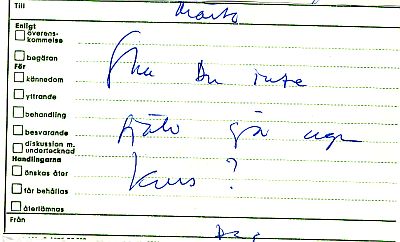 Till
Märta
Enligt
överens-
kommelse
begäran
För
kännedom
yttrande
behandling
besvarande
diskussion m.
undertecknad
Handlingarna
önskas åter
får behållas
återlämnas
Ska Du inte
själv gå ngn
kurs?
Från